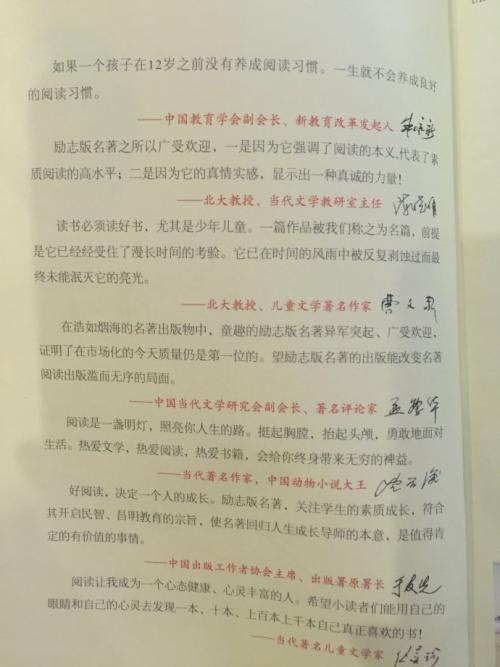 如果一个孩子在12岁之前没有养成阅读习惯。一生就不会养成良好
的阅读习惯。
——中国教育学会副会长、新教育改革发起人 朱永新
励志版名著之所以广受欢迎，一是因为它强调了阅读的本义,代表了素
质阅读的高水平；二是因为它的真情实感，显示出一种真诚的力量!
——北大教授、当代文学教研室主任 陈晓明
读书必须读好书，尤其是少年儿童。一篇作品被我们称之为名篇，前提
是它已经经受住了漫长时间的考验。它已在时间的风雨中被反复剥蚀过而最
终未能泯灭它的亮光。
——北大教授、儿童文学著名作家 曹文轩
在浩如烟海的名著出版物中，童趣的励志版名著异军突起、广受欢迎，
证明了在市场化的今天质量仍是第一位的。望励志版名著的出版能改变名著
阅读出版滥而无序的局面。
——中国当代文学研究会副会长、著名评论家 孟繁华
阅读是一盏明灯，照亮你人生的路。挺起胸膛，抬起头颅，勇敢地面对
生活。热爱文学，热爱阅读，热爱书籍，会给你终身带来无穷的裨益。
——当代著名作家，中国动物小说大王 沈石溪
好阅读，决定一个人的成长。励志版名著，关注学生的素质成长，符合
其开启民智、昌明教育的宗旨，使名著回归人生成长导师的本意，是值得肯
定的有价值的事情。
——中国出版工作者协会主席、出版署原署长 于友先
阅读让我成为一个心态健康、心灵丰富的人。希望小读者们能用自己的
眼睛和自己的心灵去发现一本、十本、上百本上千本自己真正喜欢的书!
——当代著名儿童文学家